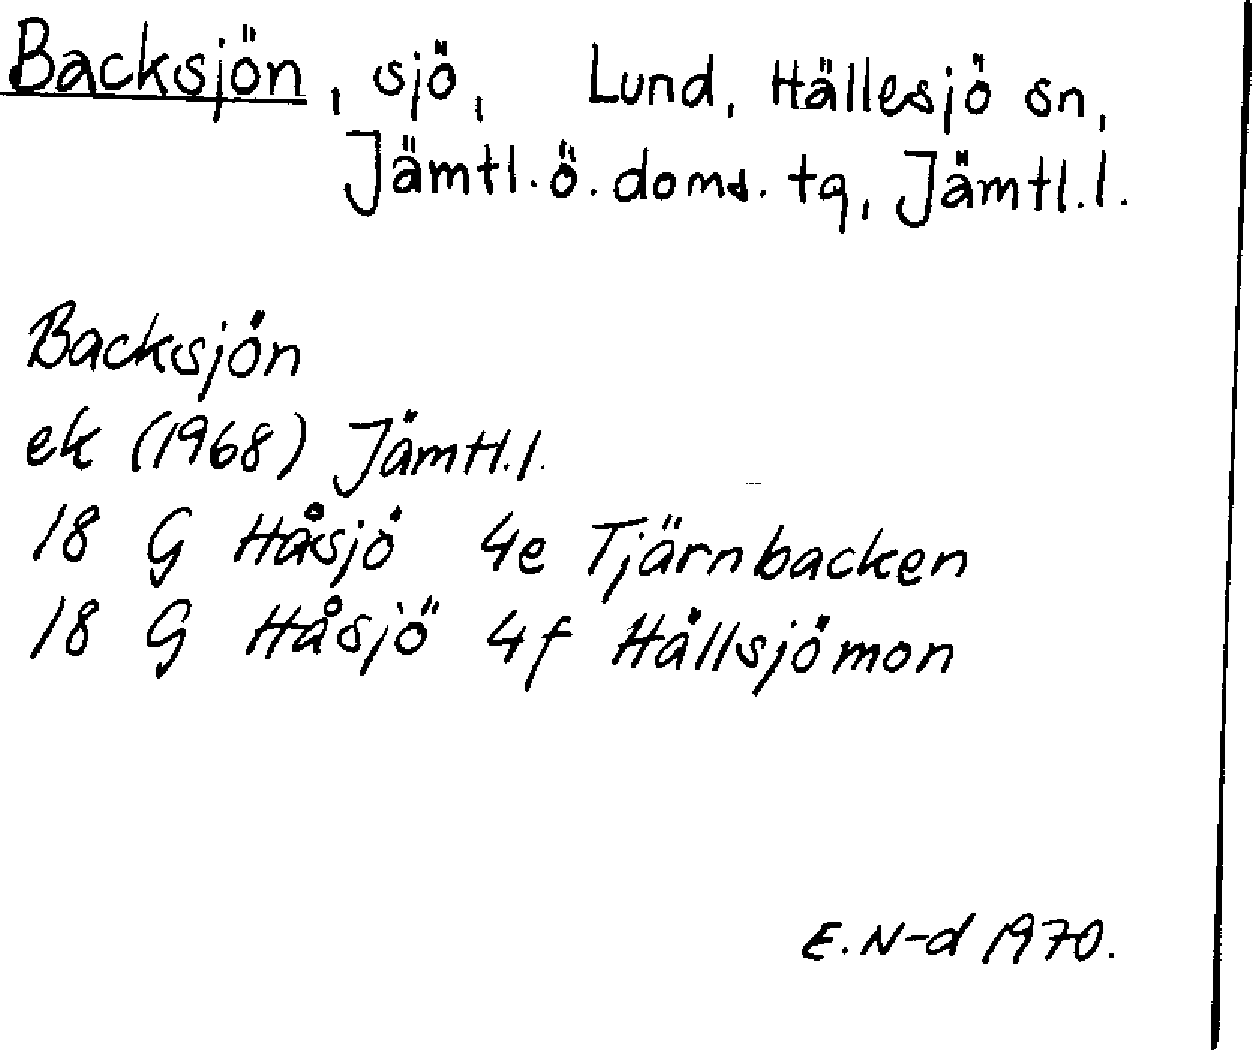 Backsjön, sjö, Lund, Hällesjö sn,
Jämtl.ö.doms.tg, Jämtl.l.
Backsjön
ek (1968) Jämtl.l.
18 G Håsjö 4e Tjärnbacken
18 G Håsjö 4f Hällsjömon
E.N-d 1970.